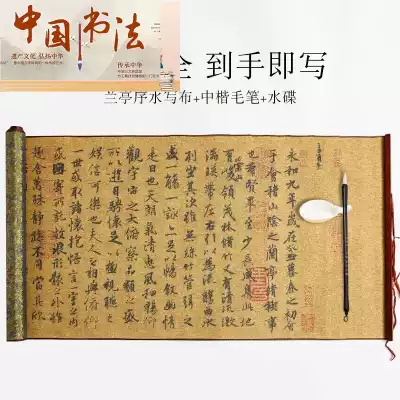 中国书法
遗产文化 弘扬中华
传承中华
全 到手即写
兰亭序水写布+中楷毛笔+水碟
永和九年歲在癸丑暮春之初會
于會稽山陰之蘭亭脩稧事
也羣賢畢至少長咸集此地
有崇山峻領茂林脩竹又有清流激
湍暎帶左右引以為流觴曲水
列坐其次雖無絲竹管弦之
盛一觴一詠亦足以暢敘幽情
是日也天朗氣清惠風和暢仰
觀宇宙之大俯察品類之盛
所以遊目騁懷足以極視聽之
娛信可樂也夫人之相與俯仰
一世或取諸懷抱悟言一室之內
或因寄所託放浪形骸之外雖
趣舍萬殊靜躁不同當其欣